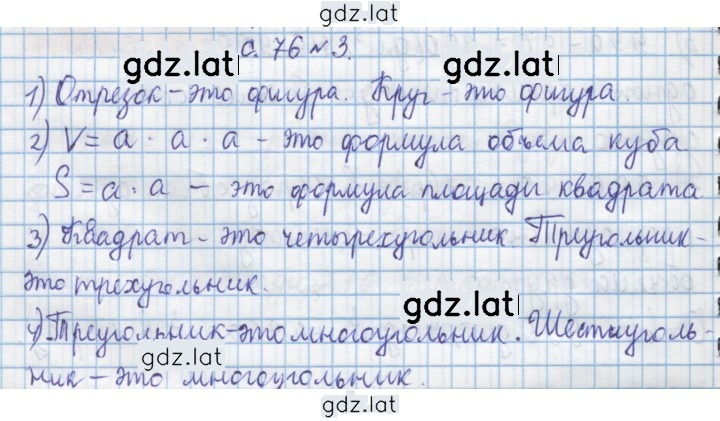 gdz.lat
с. 76 №3.
gdz.lat
1) Отрезок – это фигура. Круг – это фигура.
2) V = a · a · a – это формула объема куба.
S = a · a – это формула площади квадрата.
3) Квадрат – это четырехугольник. Треугольник –
это трехугольник.
gdz.lat
4) Треугольник – это многоугольник. Шестиуголь-
gdz.lat
ник – это многоугольник.
gdz.lat